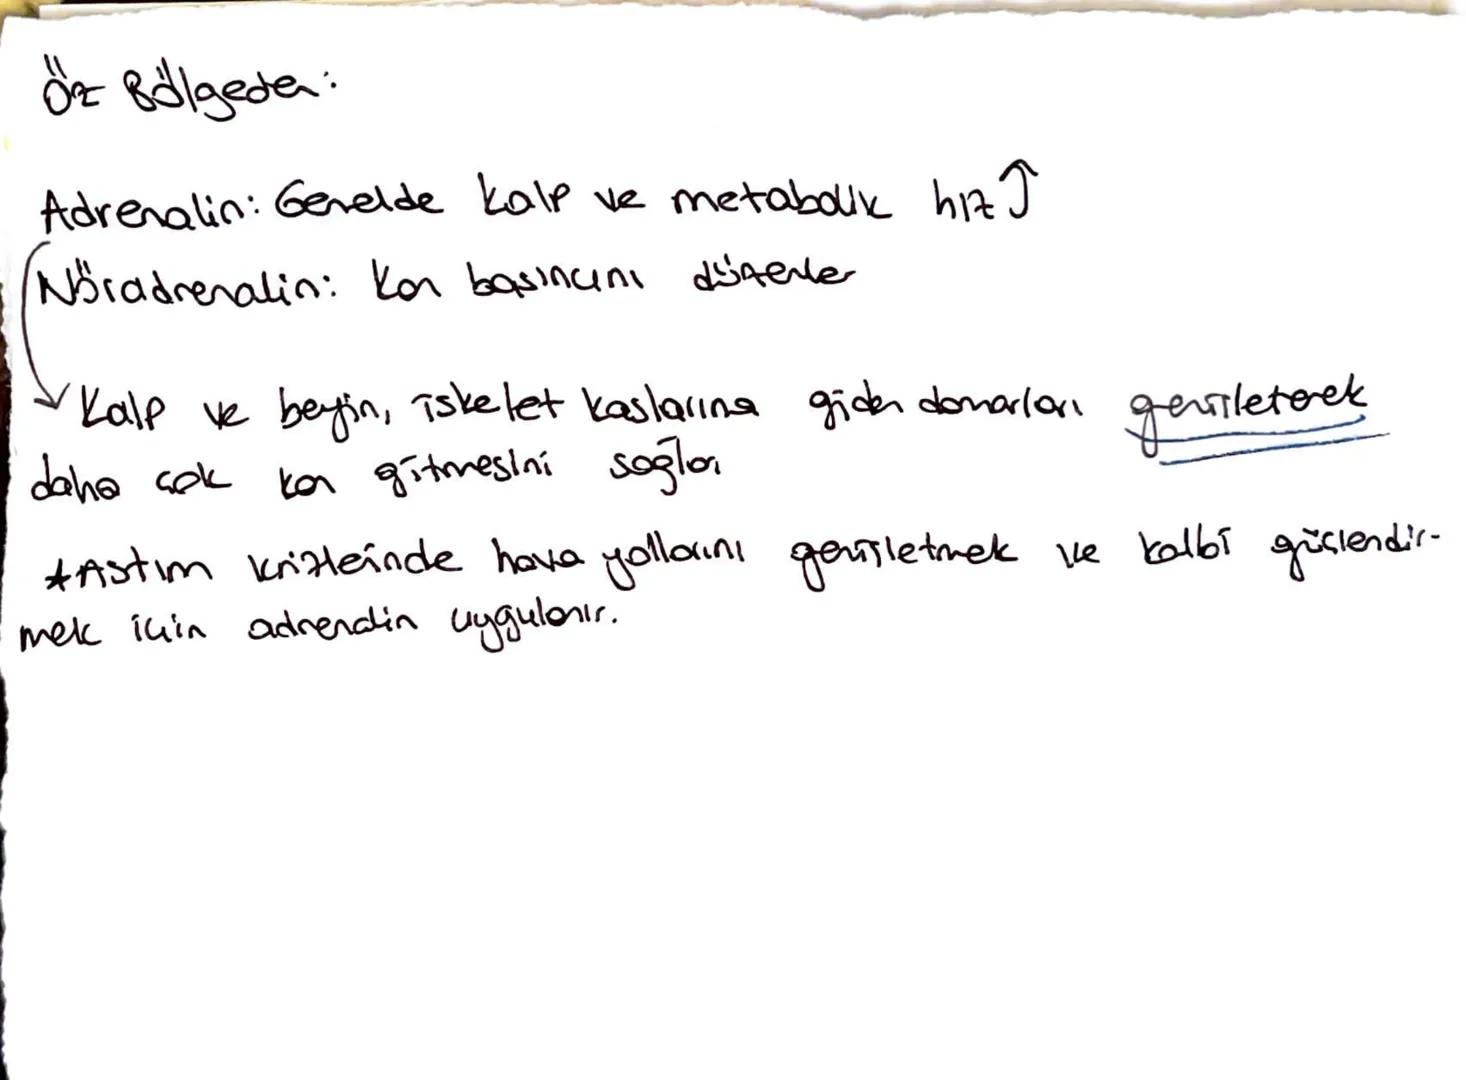 Öz Bölgeden:
Adrenalin: Genelde kalp ve metabolik hız ↑
Nöradrenalin: Kan basıncını düzenler
Kalp ve beyin, iskelet kaslarına giden damarları genişleterek
daha çok kan gitmesini sağlar
*Astım krizlerinde hava yollarını genişletmek ve kalbi güçlendir-
mek için adrenalin uygulanır.